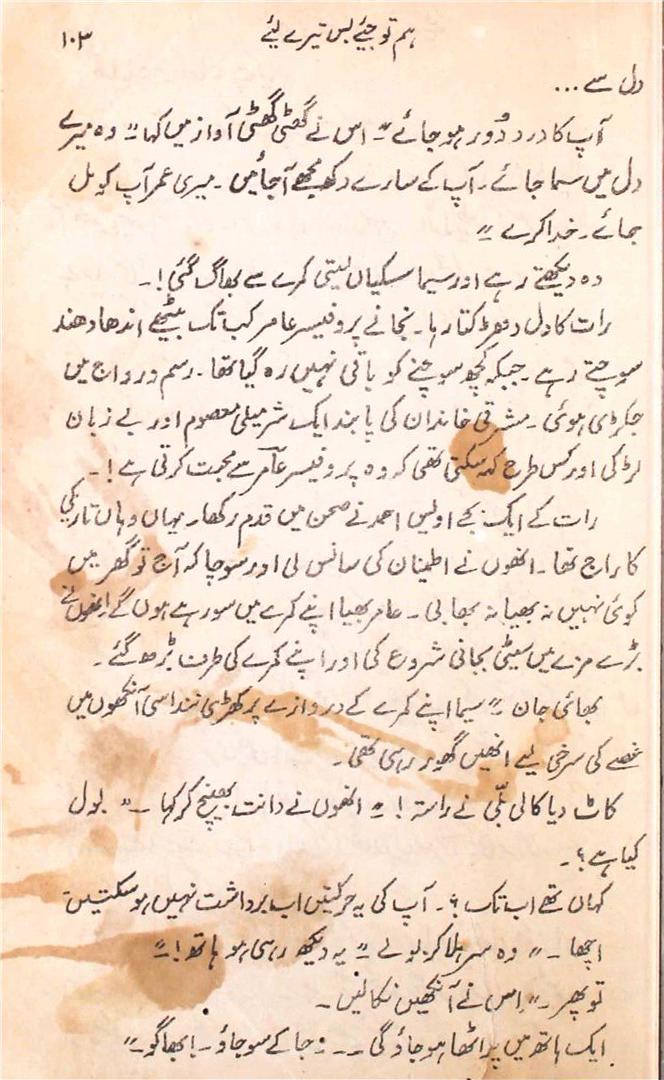 ہم تو جئے بس تیرے لئے ۱۰۳
دل سے ...
آپ کا درد دُور ہو جائے ۔" اس نے گھٹی گھٹی آواز میں کہا " وہ میرے
دل میں سما جائے ۔ آپ کے سارے دکھ مجھے آ جائیں ۔ میری عمر آپ کو مل
جائے ۔ خدا کرے "
وہ دیکھتے رہے اور سیما سسکیاں لیتی کمرے سے بھاگ گئی !۔
رات کا دل دھڑکتا رہا ۔ نجانے پروفیسر عامر کب تک بیٹھے اندھا دھند
سوچتے رہے ۔ جبکہ کچھ سوچنے کو باقی نہیں رہ گیا تھا ۔ رسم و رواج میں
جکڑی ہوئی ۔ مشرقی خاندان کی پابند ایک شرمیلی معصوم اور بے زبان
لڑکی اور کس طرح کہہ سکتی تھی کہ وہ پروفیسر عامر سے محبت کرتی ہے !۔
رات کے ایک بجے اویس احمد نے صحن میں قدم رکھا ۔ یہاں وہاں تاریکی
کا راج تھا ۔ انھوں نے اطمینان کی سانس لی اور سوچا کہ آج تو گھر میں
کوئی نہیں نہ بھیا نہ بھابی ۔ عامر بھیا اپنے کمرے میں سو رہے ہوں گے انھوں نے
بڑے مزے میں سیٹی بجانی شروع کی اور اپنے کمرے کی طرف بڑھ گئے ۔
بھائی جان " سیما اپنے کمرے کے دروازے پر کھڑی ننداسی آنکھوں میں
غصے کی سرخی لیے انھیں گھور رہی تھی ۔
کاٹ دیا کالی بلّی نے راستہ ! " انھوں نے دانت بھینچ کر کہا ۔" بول
کیا ہے ؟ ۔
کہاں تھے اب تک ؟ ۔ آپ کی یہ حرکتیں اب برداشت نہیں ہو سکتیں ۔
اچھا ۔" وہ سر ہلا کر بولے " یہ دیکھ رہی ہو ہاتھ ! "
تو پھر ۔" اس نے آنکھیں نکالیں ۔
ایک ہاتھ میں پراٹھا ہو جاؤ گی ۔۔ جا کے سو جاؤ ۔ ! بھاگو ۔"